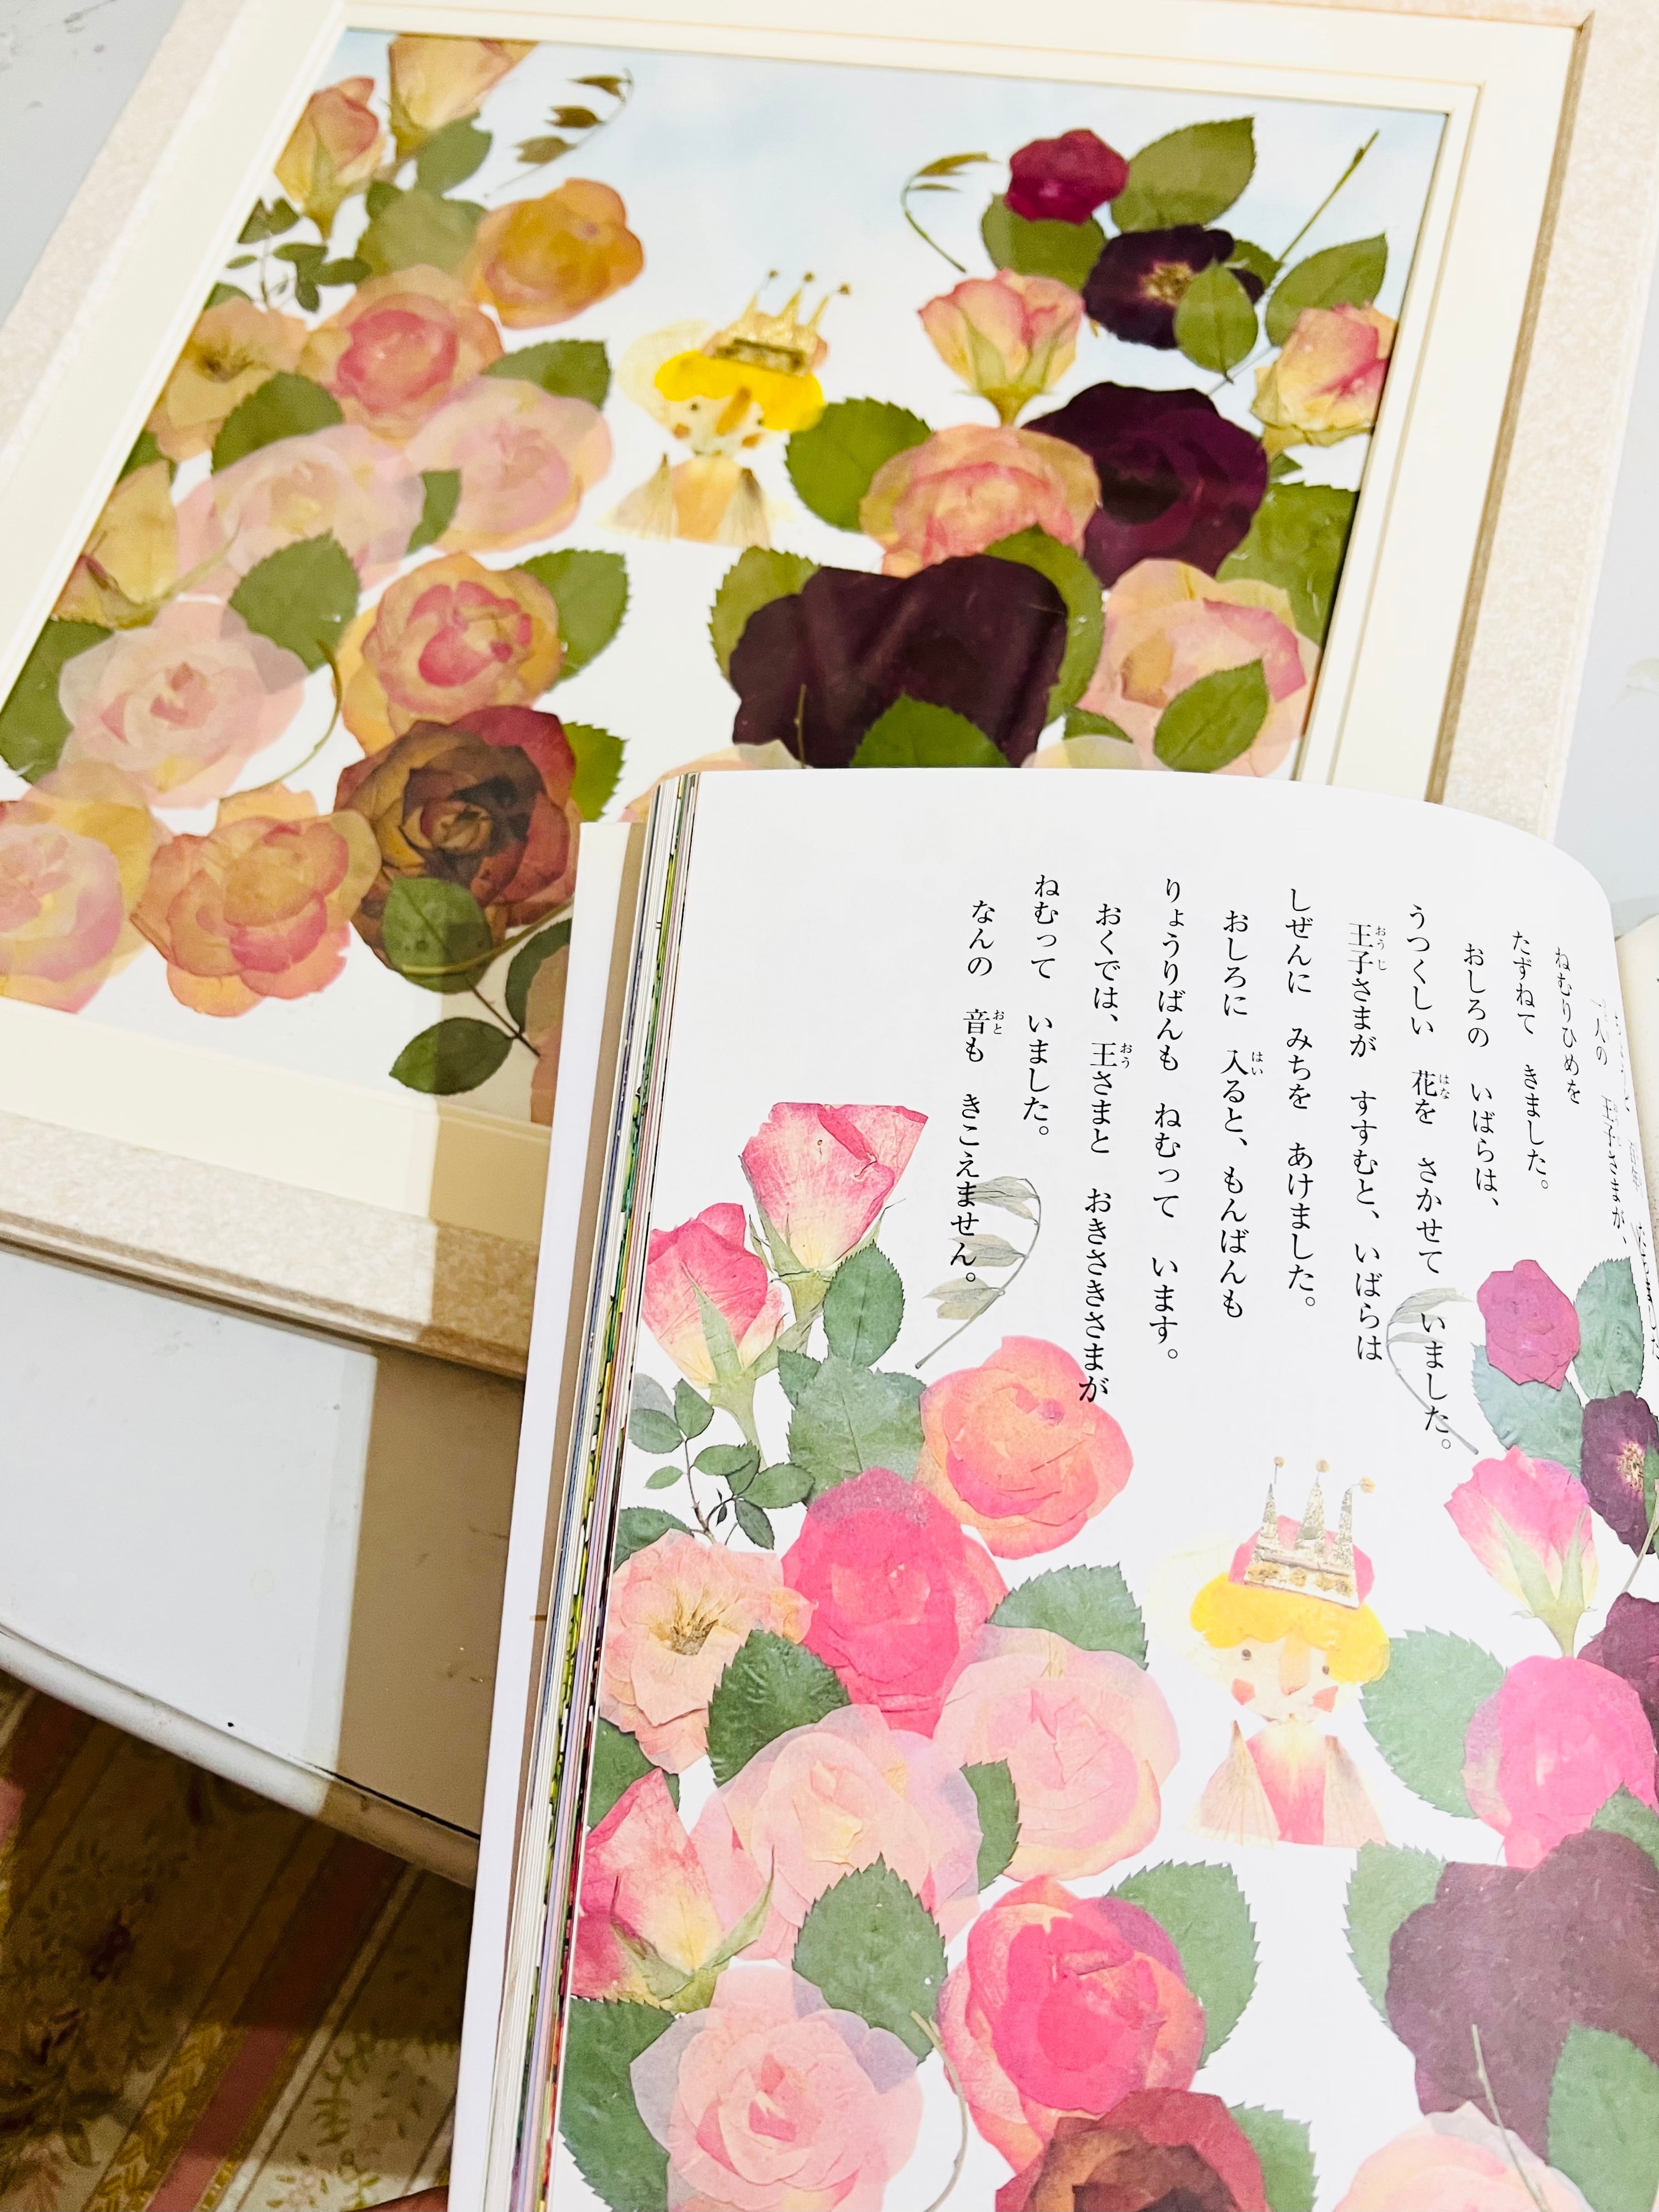 ねむりひめを
たずねて きました。
おしろの いばらは、
うつくしい 花を さかせて いました。
王子さまが すすむと、いばらは
しぜんに みちを あけました。
おしろに 入ると、もんばんも
りょうりばんも ねむって います。
おくでは、王さまと おきさきさまが
ねむって いました。
なんの 音も きこえません。